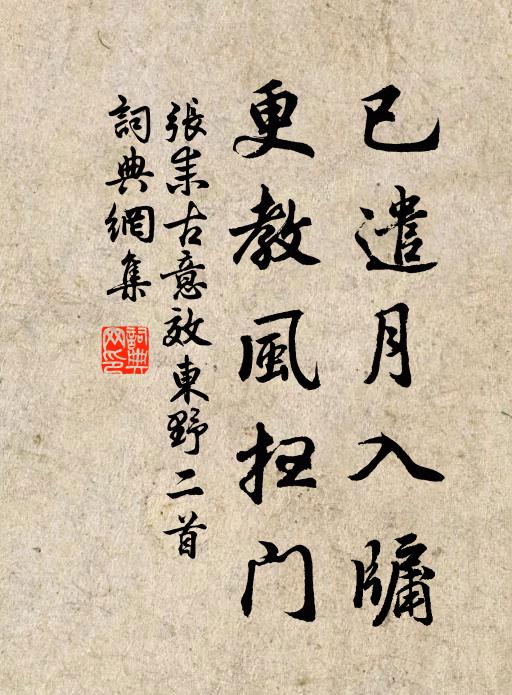 已遣月入牖
更教風抂門
張耒古意效東野二首
詞典網集
詞典网印